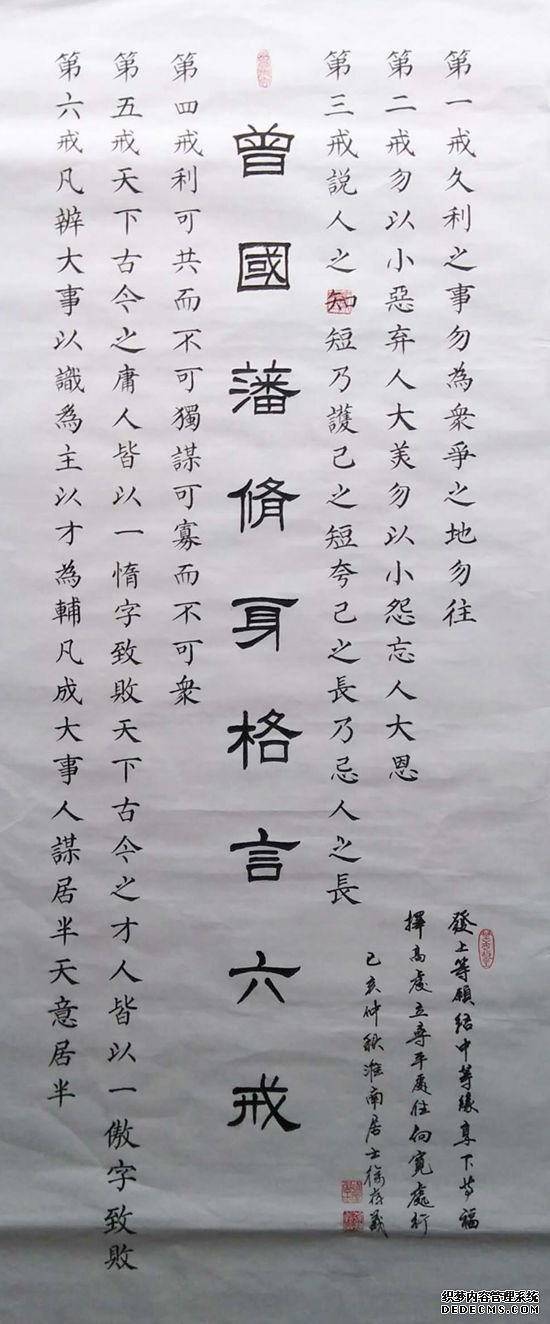 第一戒久利之事勿為衆爭之地勿往
第二戒勿以小惡弃人大美勿以小怨忘人大恩
第三戒説人之知短乃護己之短夸己之長乃忌人之長
發上等願結中等緣享下等福
擇高處立尋平處住向寬處行
己亥仲秋淮南居士徐存義
曾國藩脩身格言六戒
第四戒利可共而不可獨謀可寡而不可衆
第五戒天下古今之庸人皆以一惰字致敗天下古今之才人皆以一傲字致敗
第六戒凡辨大事以識爲主以才為輔凡成大事人謀居半天意居半
织梦内容管理系统
DEDECMS.COM